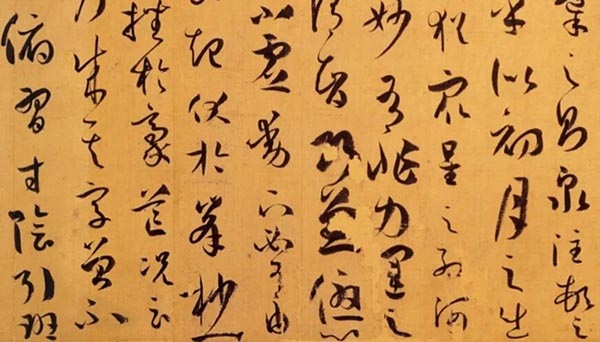 導之則泉注頓之
乎似初月之出
猶眾星之列河
妙有非力運之
智巧兼優
不虛動下必有由
起伏於峯杪
挫於豪芒況云
成其字曾不
俯習寸陰引班